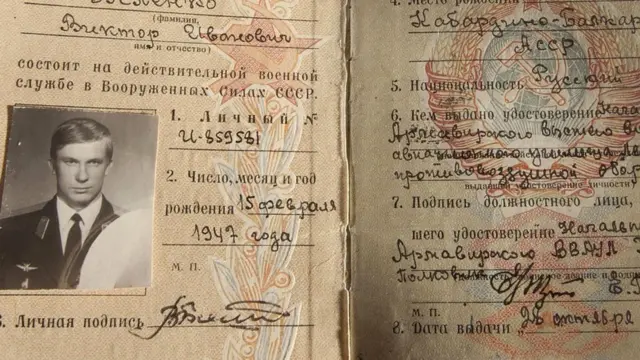 (фамилия,
Виктор Иванович
имя и отчество)
состоит на действительной военной
службе в Вооруженных Силах СССР.
1. Личный №
И-859581
2. Число, месяц и год
рождения 15 февраля
1947 года
М. П.
3. Личная подпись
4. Место рождения
Кабардино-Балкар
АССР
5. Национальность Русский
6. Кем выдано удостоверение Нача
Армавирского высшего в
авиационного училища
противовоздушной обор
7. Подпись должностного лица,
шего удостоверение Начальн
Армавирского ВВАУЛ
Полковник
М. П.
8. Дата выдачи „26 октября